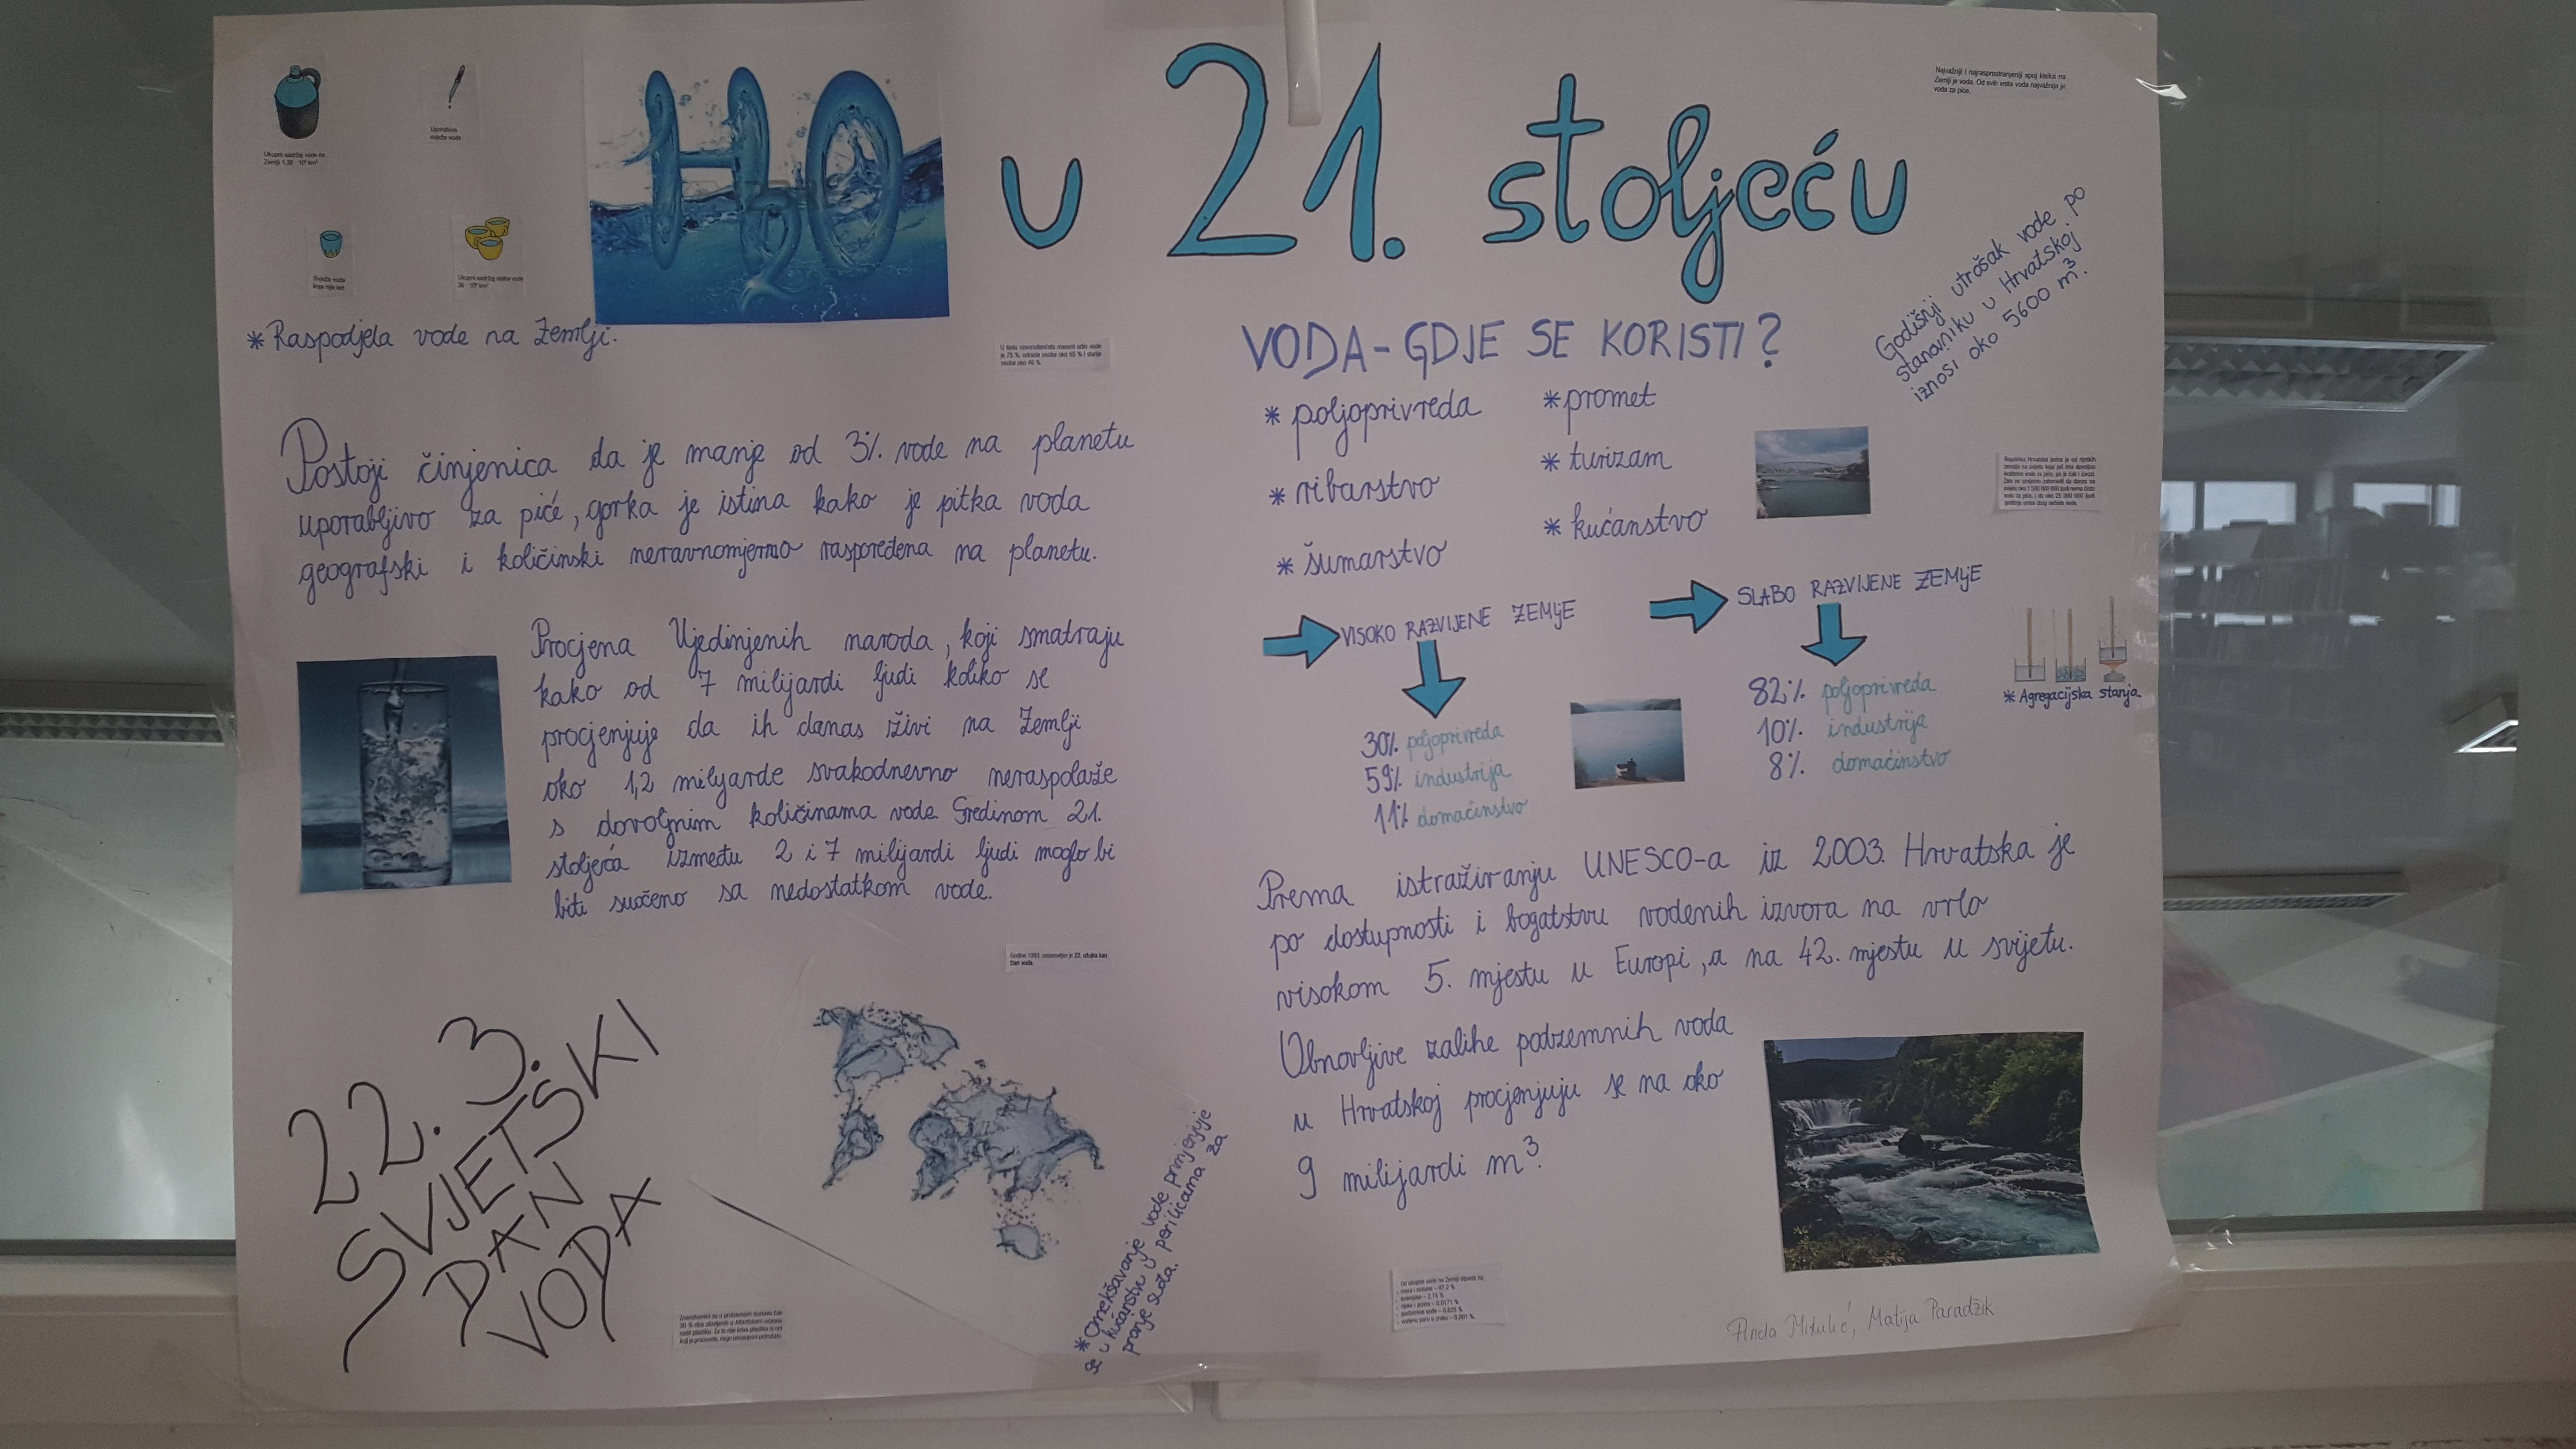 H2O u 21. stoljeću
Najvažniji i najrasprostranjeniji spoj kisika na
Zemlji je voda. Od svih vrsta voda najvažnija je
voda za piće.
Ukupni sadržaj vode na
Uporabiva
svježa voda
Svježa voda
koja nije led
Ukupni sadržaj slatke vode
*Raspodjela vode na Zemlji.
U tijelu novorođenčeta maseni udio vode
je 75 %, odrasle osobe oko 65 % i starije
osobe oko 45 %.
Postoji činjenica da je manje od 3% vode na planetu
uporabljivo za piće, gorka je istina kako je pitka voda
geografski i količinski neravnomjerno raspoređena na planetu.
Procjena Ujedinjenih naroda, koji smatraju
kako od 7 milijardi ljudi koliko se
procjenjuje da ih danas živi na Zemlji
oko 1,2 milijarde svakodnevno neraspolaže
s dovoljnim količinama vode. Sredinom 21.
stoljeća između 2 i 7 milijardi ljudi moglo bi
biti suočeno sa nedostatkom vode.
Godine 1993. ustanovljen je 22. ožujka kao
Dan voda.
22. 3.
SVJETSKI
DAN
VODA
*Omekšavanje vode primjenjuje
se u kućanstvu u perilicama za
pranje suđa.
VODA-GDJE SE KORISTI?
* poljoprivreda
* ribarstvo
* šumarstvo
* promet
* turizam
* kućanstvo
Godišnji utrošak vode po
stanovniku u Hrvatskoj
iznosi oko 5600 m³.
VISOKO RAZVIJENE ZEMLJE
30% poljoprivreda
59% industrija
11% domaćinstvo
SLABO RAZVIJENE ZEMLJE
82% poljoprivreda
10% industrija
8% domaćinstvo
* Agregacijska stanja
Prema istraživanju UNESCO-a iz 2003. Hrvatska je
po dostupnosti i bogatstvu vodenih izvora na vrlo
visokom 5. mjestu u Europi, a na 42. mjestu u svijetu.
Obnovljive zalihe podzemnih voda
u Hrvatskoj procjenjuju se na oko
9 milijardi m³.
Matija Paradžik